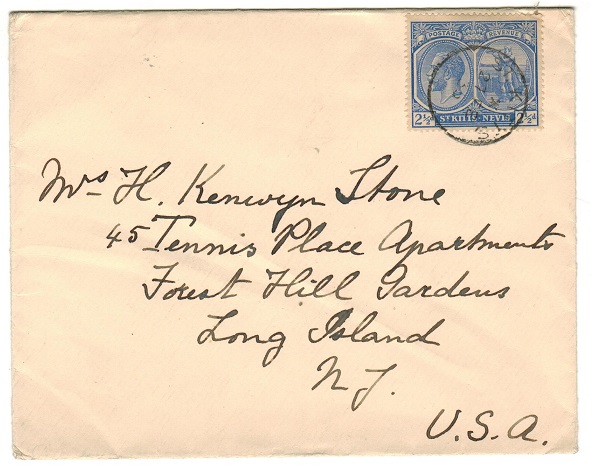 POSTAGE REVENUE
2½ ST KITTS-NEVIS 2½d
Mrs H. Kenwyn Stone
45 Tennis Place Apartments
Forest Hill Gardens
Long Island
N.Y.
U.S.A.